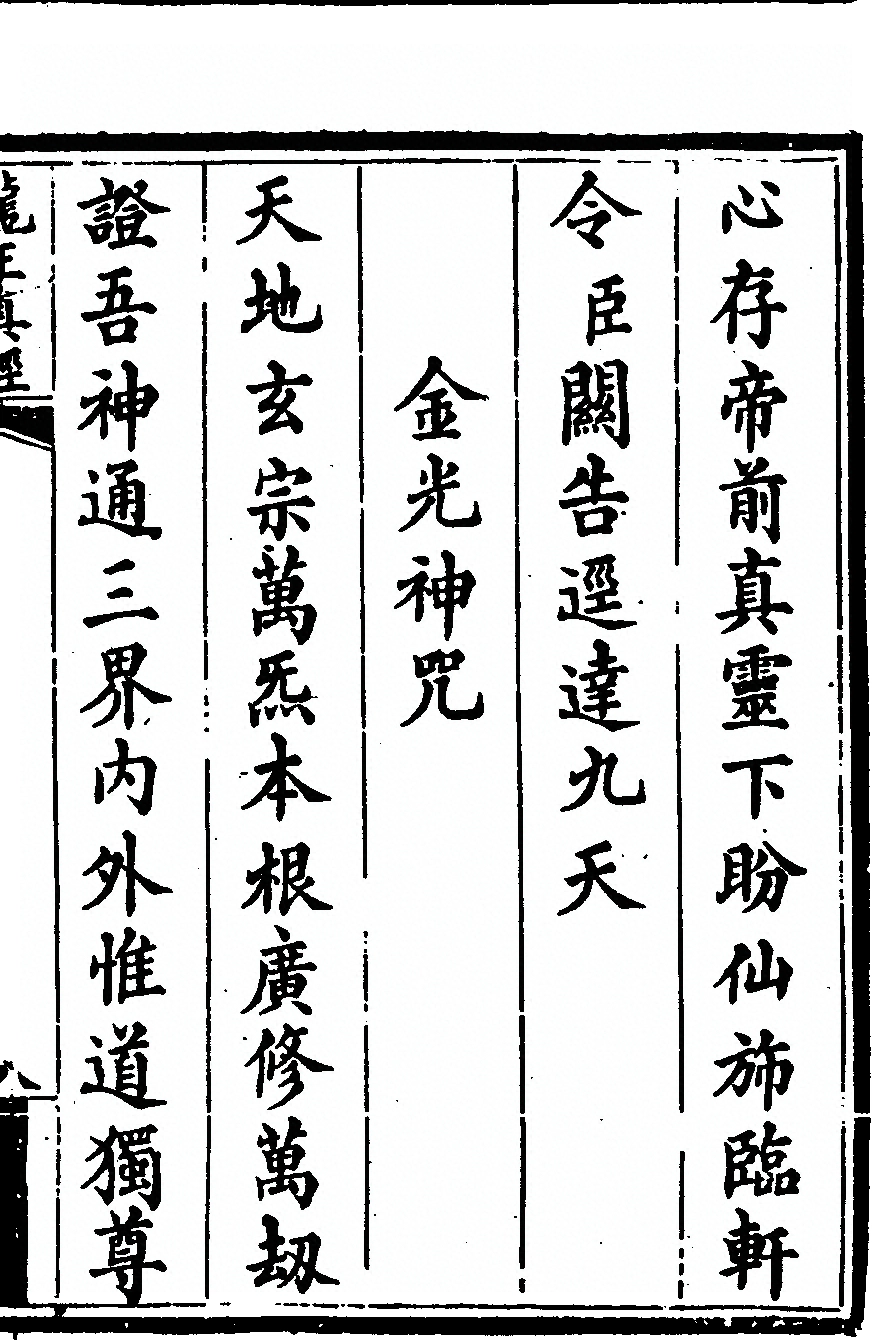 心存帝前真靈下盼仙斾臨軒
令臣關告逕達九天
金光神咒
天地玄宗萬炁本根廣修萬劫
證吾神通三界內外惟道獨尊
龍王真經
八